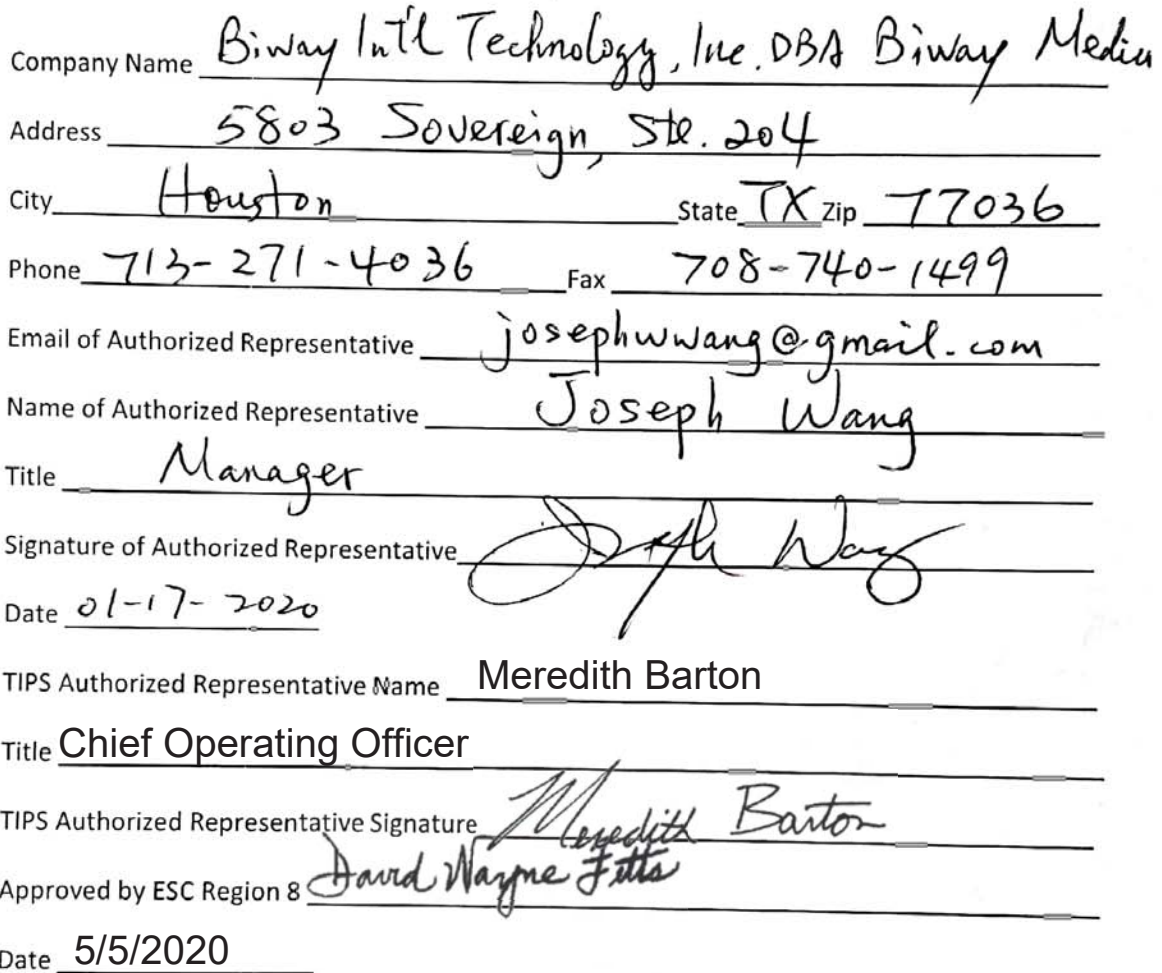 Company Name Biway Int'l Technology, Inc. DBA Biway Media
Address 5803 Sovereign, Ste. 204
City Houston State TX Zip 77036
Phone 713-271-4036 Fax 708-740-1499
Email of Authorized Representative josephwwang@gmail.com
Name of Authorized Representative Joseph Wang
Title Manager
Signature of Authorized Representative Joseph Wang
Date 01-17-2020
TIPS Authorized Representative Name Meredith Barton
Title Chief Operating Officer
TIPS Authorized Representative Signature Meredith Barton
Approved by ESC Region 8 David Wayne Fitts
Date 5/5/2020